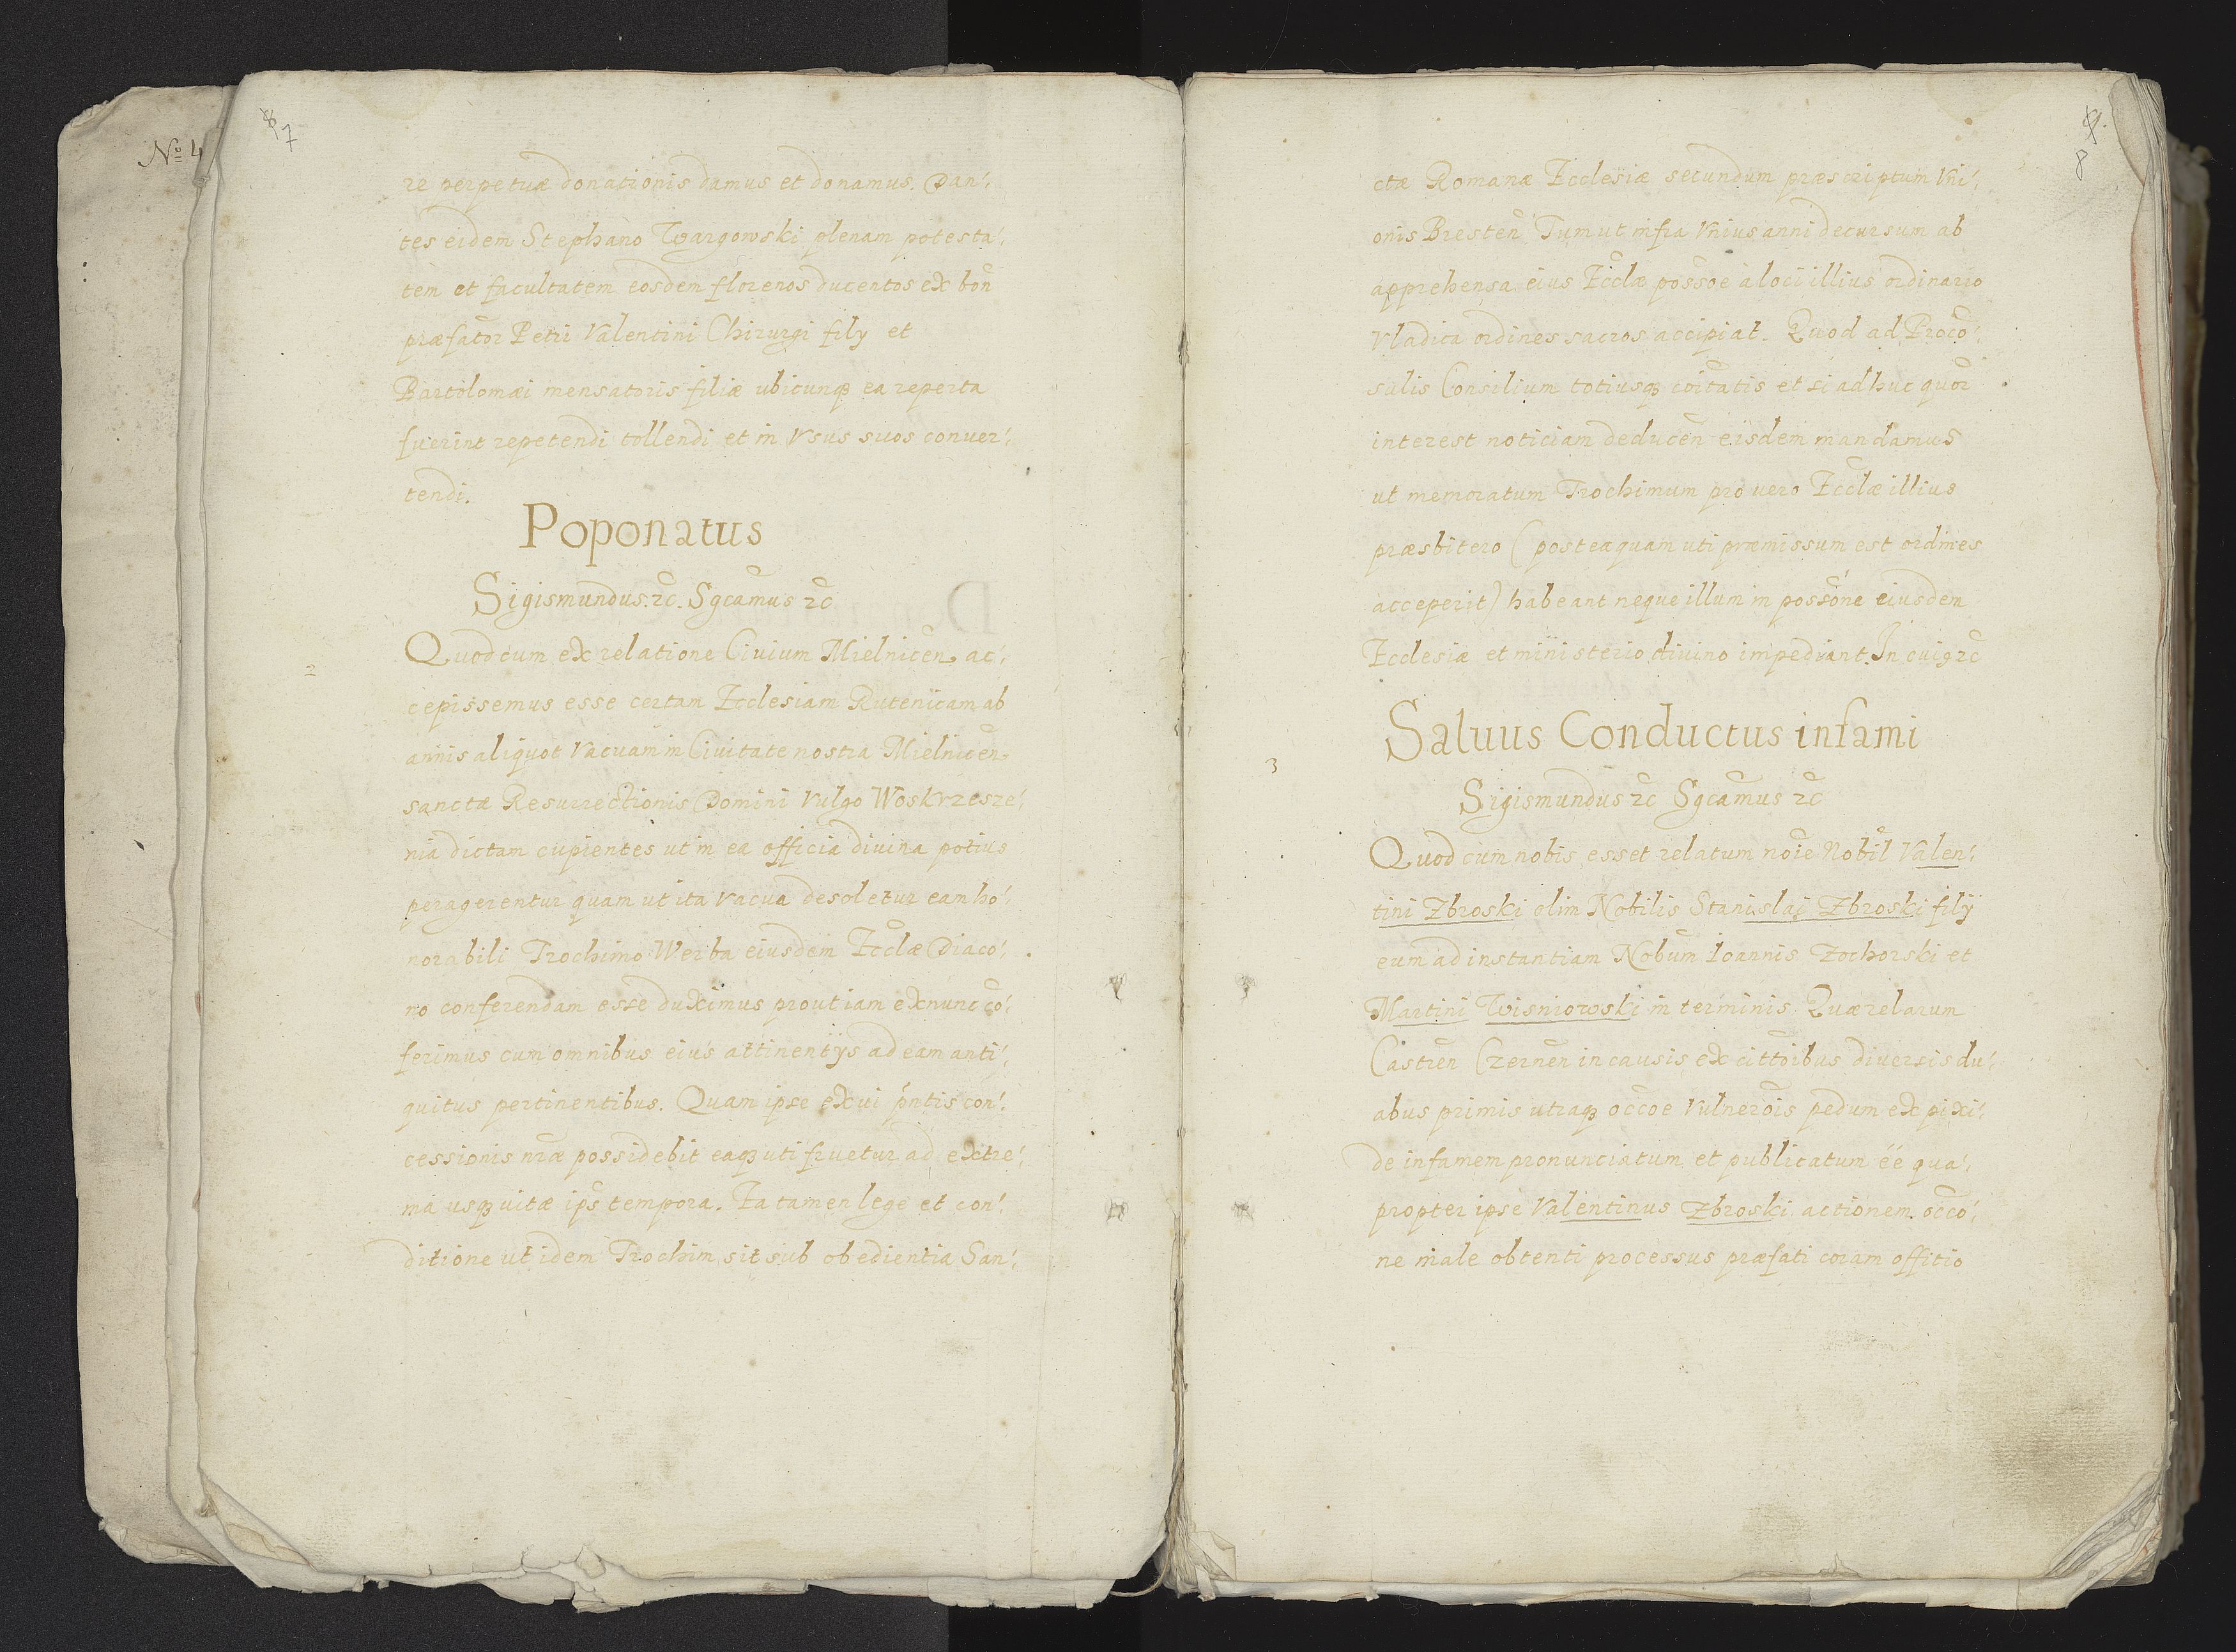 No 4
8
7
re perpetuæ donationis damus et donamus. Dan-
tes eidem Stephano Twargowski plenam potesta-
tem et facultatem eosdem florenos ducentos ex bon̄
præfator Petri Valentini Chirurgi filÿ et
Bartolomæi mensatoris filiæ ubicunqȝ ea reperta
fuerint repetendi tollendi et in Vsus suos conver-
tendi.
Poponatus
Sigismundus. ꝛc. Sgcamus ꝛc
2
Quod cum ex relatione Civium Mielnicen̄ ac-
cepissemus esse certam Ecclesiam Rutenicam ab
annis aliquot Vacuam in Civitate nostra Mielnicen̄
sanctæ Resurrectionis Domini Vulgo Woskrzesze-
nia dictam cupientes ut in ea officia divina potius
peragerentur quam ut ita vacua desoletur eam ho-
norabili Trochimo Werba eiusdem Eccl̄æ Diaco-
no conferendam esse duximus prout iam ex nunc cō-
ferimus cum omnibus eius attinentÿs ad eam anti-
quitus pertinentibus. Quam ipse ex vi pn̄tis con-
cessionis nr̄æ possidebit eaqȝ uti fruetur ad extre-
ma usqȝ vitæ ips̄ tempora. Ea tamen lege et con-
ditione ut idem Trochim sit sub obedientia San-
9.
8
ctæ Romanæ Ecclesiæ secundum præscriptum Vni-
onis Bresten̄ Tum ut infra Vnius anni decursum ab
apprehensa eius Eccl̄æ possoē a loci illius ordinario
Vladica ordines sacros accipiat. Quod ad Procō-
sulis Consilium totiusqȝ coītatis et si ad huc quor̄
interest noticiam deducen̄ eisdem mandamus
ut memoratum Trochimum pro vero Eccl̄æ illius
præsbitero (posteaquam uti præmissum est ordines
acceperit) habeant neque illum in possōne eiusdem
Ecclesiæ et ministerio divino impediant. In cuiꝯ ꝛc
Saluus Conductus infami
Sigismundus ꝛc Sgcamus ꝛc
3
Quod cum nobis esset relatum noīe Nobil̄ Valen-
tini Zbroski olim Nobilis Stanislai Zbroski filÿ
eum ad instantiam Nobūm Ioannis Zochorski et
Martini Twisniowski in terminis Quærelarum
Castren̄ Czernen̄ in causis ex cittōibus diversis du-
abus primis utraqȝ occōe Vulnerōis pedum ex pixi-
de infamem pronunciatum et publicatum eē qua-
propter ipse Valentinus Zbroski actionem occō-
ne male obtenti processus præfati coram offitio